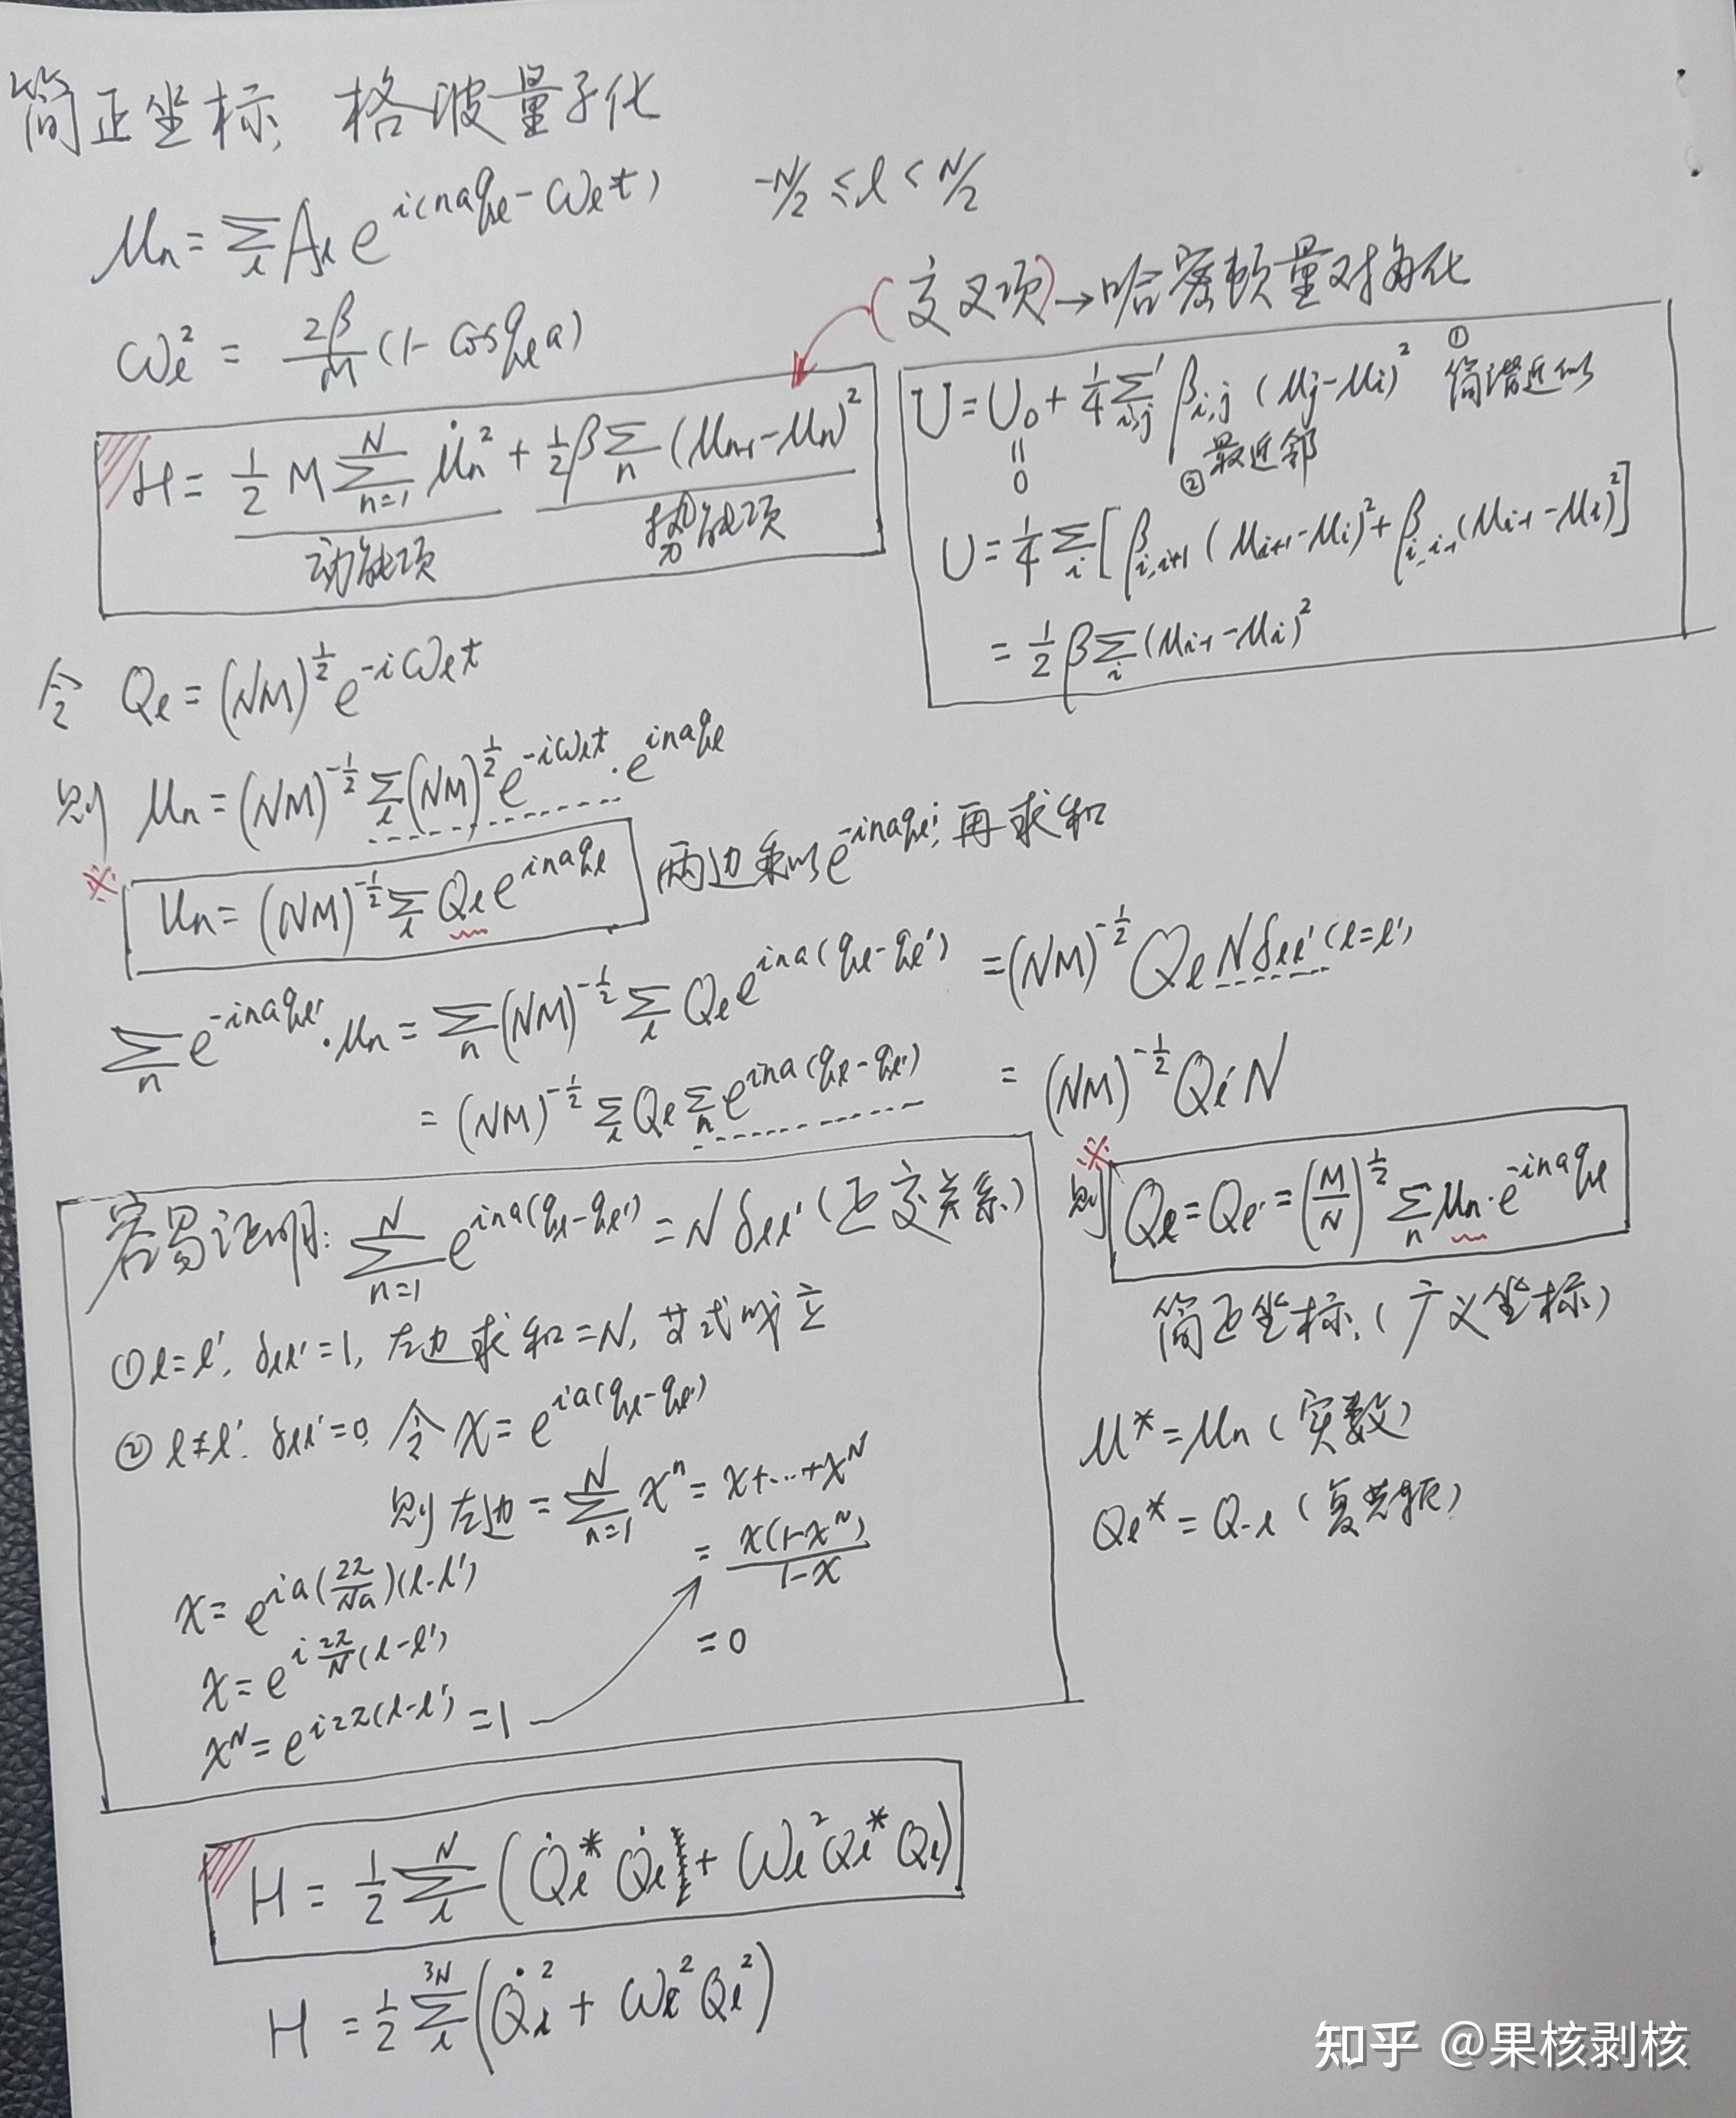 简正坐标, 格波量子化
μn = Σ_l A_l e^{i(naq_l - ω_l t)}   -N/2 ≤ l < N/2
ω_l² = 2β/M (1 - cos q_l a)
(交叉项) → 哈密顿量对角化
H = 1/2 M Σ_{n=1}^{N} μ̇n² + 1/2 β Σ_n (μ_{n-1} - μn)²
动能项   势能项
U = U₀ + 1/4 Σ'_{i,j} β_{i,j} (μj - μi)²   ① 简谐近似
॥ 0   ② 最近邻
U = 1/4 Σ_i [β_{i,i+1} (μ_{i+1} - μi)² + β_{i,i-1} (μ_{i-1} - μi)²]
= 1/2 β Σ_i (μ_{i-1} - μi)²
令 Q_l = (NM)^{1/2} e^{-iω_l t}
则 μn = (NM)^{-1/2} Σ_l (NM)^{1/2} e^{-iω_l t} · e^{inaq_l}
※ μn = (NM)^{-1/2} Σ_l Q_l e^{inaq_l}   两边乘以 e^{-inaq_l'}, 再求和
Σ_n e^{-inaq_l'} · μn = Σ_n (NM)^{-1/2} Σ_l Q_l e^{ina(q_l - q_l')} = (NM)^{-1/2} Q_l N δ_{ll'} (l=l')
= (NM)^{-1/2} Σ_l Q_l Σ_n e^{ina(q_l - q_l')} = (NM)^{-1/2} Q_l' N
容易证明: Σ_{n=1}^{N} e^{ina(q_l - q_l')} = N δ_{ll'} (正交关系)
① l = l', δ_{ll'} = 1, 左边求和 = N, 等式成立
② l ≠ l', δ_{ll'} = 0, 令 x = e^{ia(q_l - q_l')}
则左边 = Σ_{n=1}^{N} x^n = x + ··· + x^N
= x(1-x^N) / 1-x
= 0
x = e^{ia(2π/Na)(l-l')}
x = e^{i 2π/N (l-l')}
x^N = e^{i2π(l-l')} = 1
※ 则 Q_l = Q_l' = (M/N)^{1/2} Σ_n μn · e^{-inaq_l}
简正坐标, (广义坐标)
μ* = μn (实数)
Q_l* = Q_{-l} (复共轭)
H = 1/2 Σ_l^N (Q̇_l* Q̇_l + ω_l² Q_l* Q_l)
H = 1/2 Σ_l^{3N} (Q̇_l² + ω_l² Q_l²)
知乎 @果核剥核